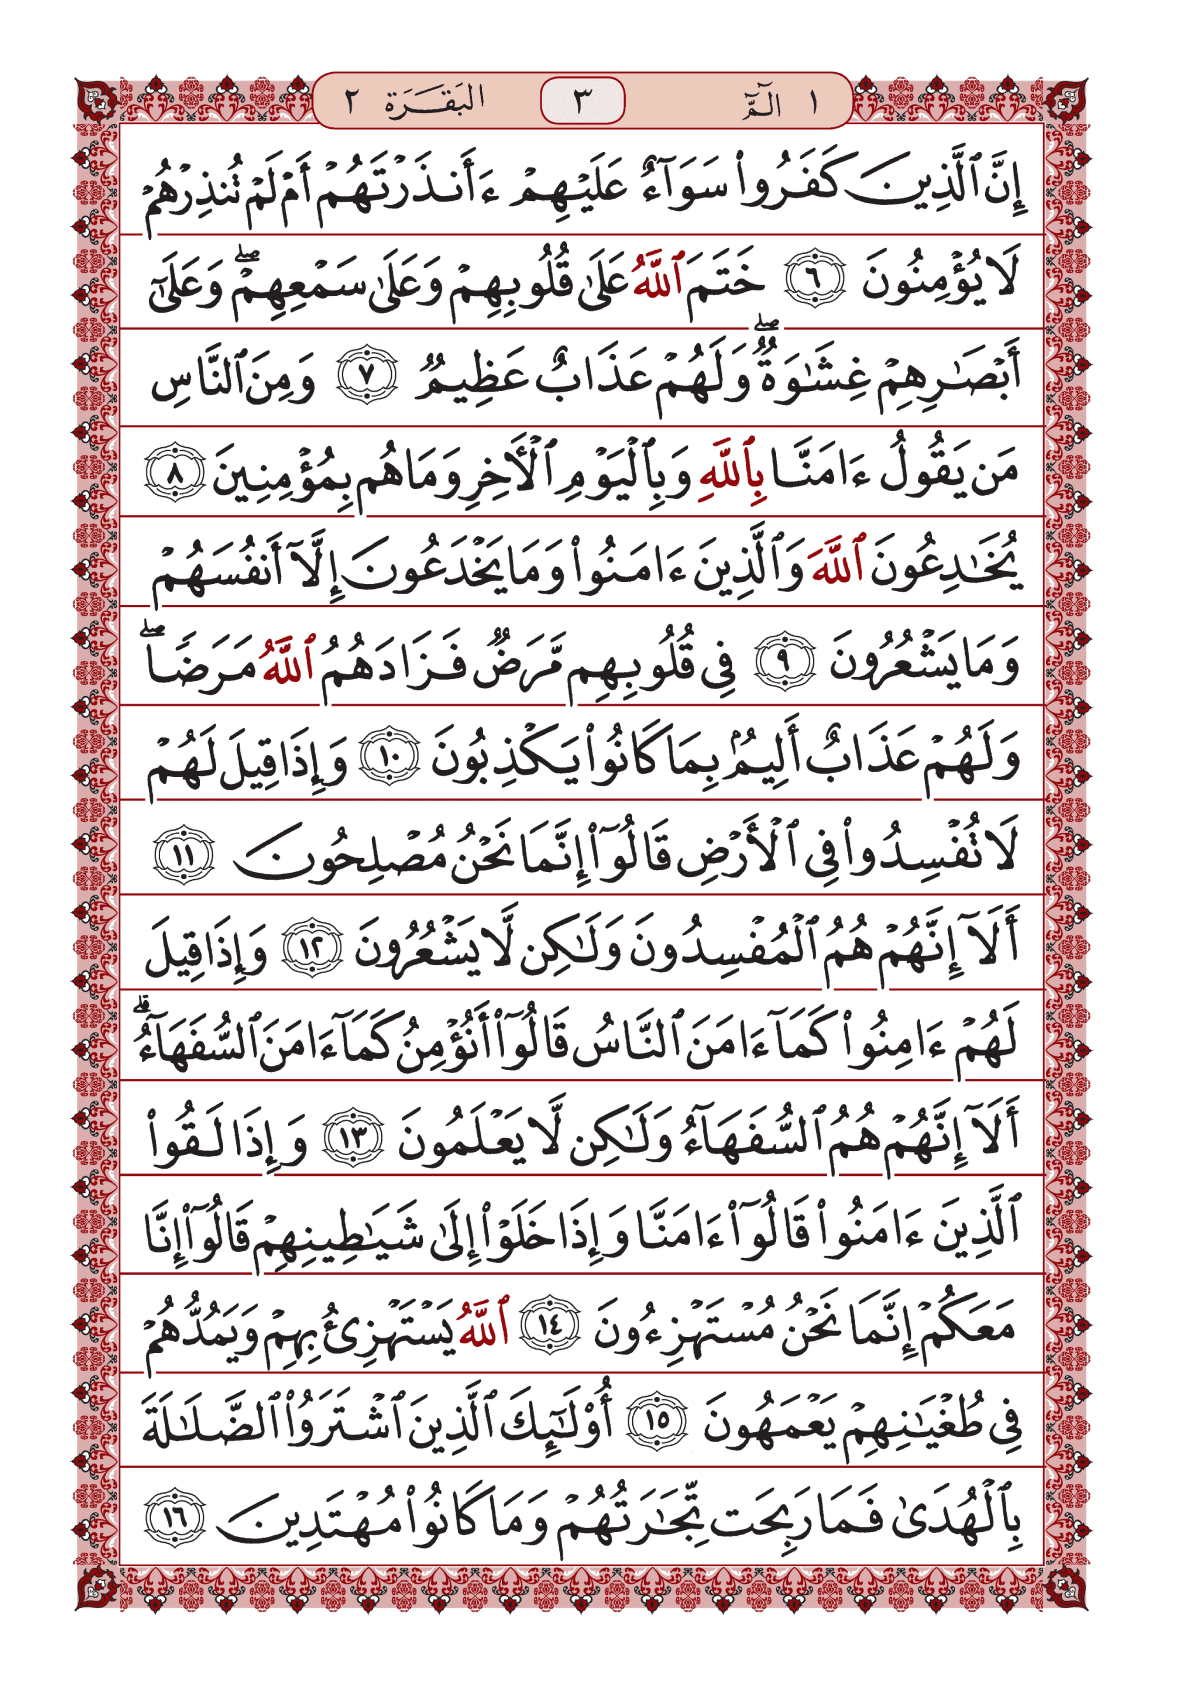 ١ الٓمّٓ ٣ البَقَرَة ٢
إِنَّ ٱلَّذِينَ كَفَرُوا۟ سَوَآءٌ عَلَيْهِمْ ءَأَنذَرْتَهُمْ أَمْ لَمْ تُنذِرْهُمْ
لَا يُؤْمِنُونَ ٦ خَتَمَ ٱللَّهُ عَلَىٰ قُلُوبِهِمْ وَعَلَىٰ سَمْعِهِمْ ۖ وَعَلَىٰٓ
أَبْصَـٰرِهِمْ غِشَـٰوَةٌ ۖ وَلَهُمْ عَذَابٌ عَظِيمٌ ٧ وَمِنَ ٱلنَّاسِ
مَن يَقُولُ ءَامَنَّا بِٱللَّهِ وَبِٱلْيَوْمِ ٱلْأَخِرِ وَمَا هُم بِمُؤْمِنِينَ ٨
يُخَـٰدِعُونَ ٱللَّهَ وَٱلَّذِينَ ءَامَنُوا۟ وَمَا يَخْدَعُونَ إِلَّآ أَنفُسَهُمْ
وَمَا يَشْعُرُونَ ٩ فِى قُلُوبِهِم مَّرَضٌ فَزَادَهُمُ ٱللَّهُ مَرَضًا ۖ
وَلَهُمْ عَذَابٌ أَلِيمٌۢ بِمَا كَانُوا۟ يَكْذِبُونَ ١٠ وَإِذَا قِيلَ لَهُمْ
لَا تُفْسِدُوا۟ فِى ٱلْأَرْضِ قَالُوٓا۟ إِنَّمَا نَحْنُ مُصْلِحُونَ ١١
أَلَآ إِنَّهُمْ هُمُ ٱلْمُفْسِدُونَ وَلَـٰكِن لَّا يَشْعُرُونَ ١٢ وَإِذَا قِيلَ
لَهُمْ ءَامِنُوا۟ كَمَآ ءَامَنَ ٱلنَّاسُ قَالُوٓا۟ أَنُؤْمِنُ كَمَآ ءَامَنَ ٱلسُّفَهَآءُ ۗ
أَلَآ إِنَّهُمْ هُمُ ٱلسُّفَهَآءُ وَلَـٰكِن لَّا يَعْلَمُونَ ١٣ وَإِذَا لَقُوا۟
ٱلَّذِينَ ءَامَنُوا۟ قَالُوٓا۟ ءَامَنَّا وَإِذَا خَلَوْا۟ إِلَىٰ شَيَـٰطِينِهِمْ قَالُوٓا۟ إِنَّا
مَعَكُمْ إِنَّمَا نَحْنُ مُسْتَهْزِءُونَ ١٤ ٱللَّهُ يَسْتَهْزِئُ بِهِمْ وَيَمُدُّهُمْ
فِى طُغْيَـٰنِهِمْ يَعْمَهُونَ ١٥ أُو۟لَـٰٓئِكَ ٱلَّذِينَ ٱشْتَرَوُا۟ ٱلضَّلَـٰلَةَ
بِٱلْهُدَىٰ فَمَا رَبِحَت تِّجَـٰرَتُهُمْ وَمَا كَانُوا۟ مُهْتَدِينَ ١٦